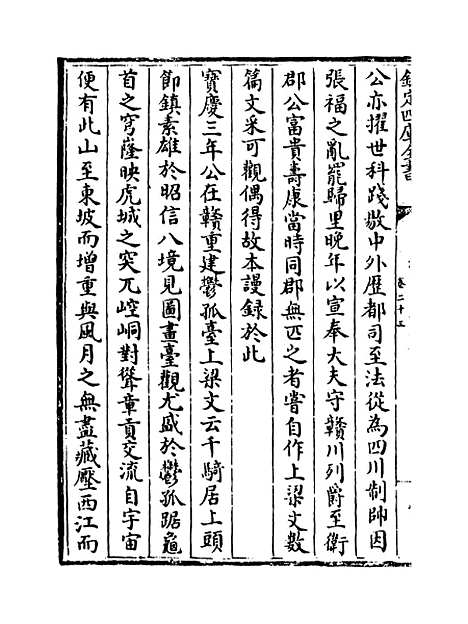 欽定四庫全書
卷二十五
公亦擢世科踐敭中外歴都司至法從為四川制帥因
張福之亂罷歸里晚年以宣奉大夫守贛川列爵至衛
郡公富貴壽康當時同郡無匹之者嘗自作上梁文數
篇文采可觀偶得故本謾録於此
寶慶三年公在贛重建鬱孤臺上梁文云千騎居上頭
節鎮素雄於昭信八境見圖畫臺觀尤盛於鬱孤踞龜
首之穹窿映虎城之突兀崆峒對聳章貢交流自宇宙
便有此山至東坡而增重與風月之無盡藏壓西江而